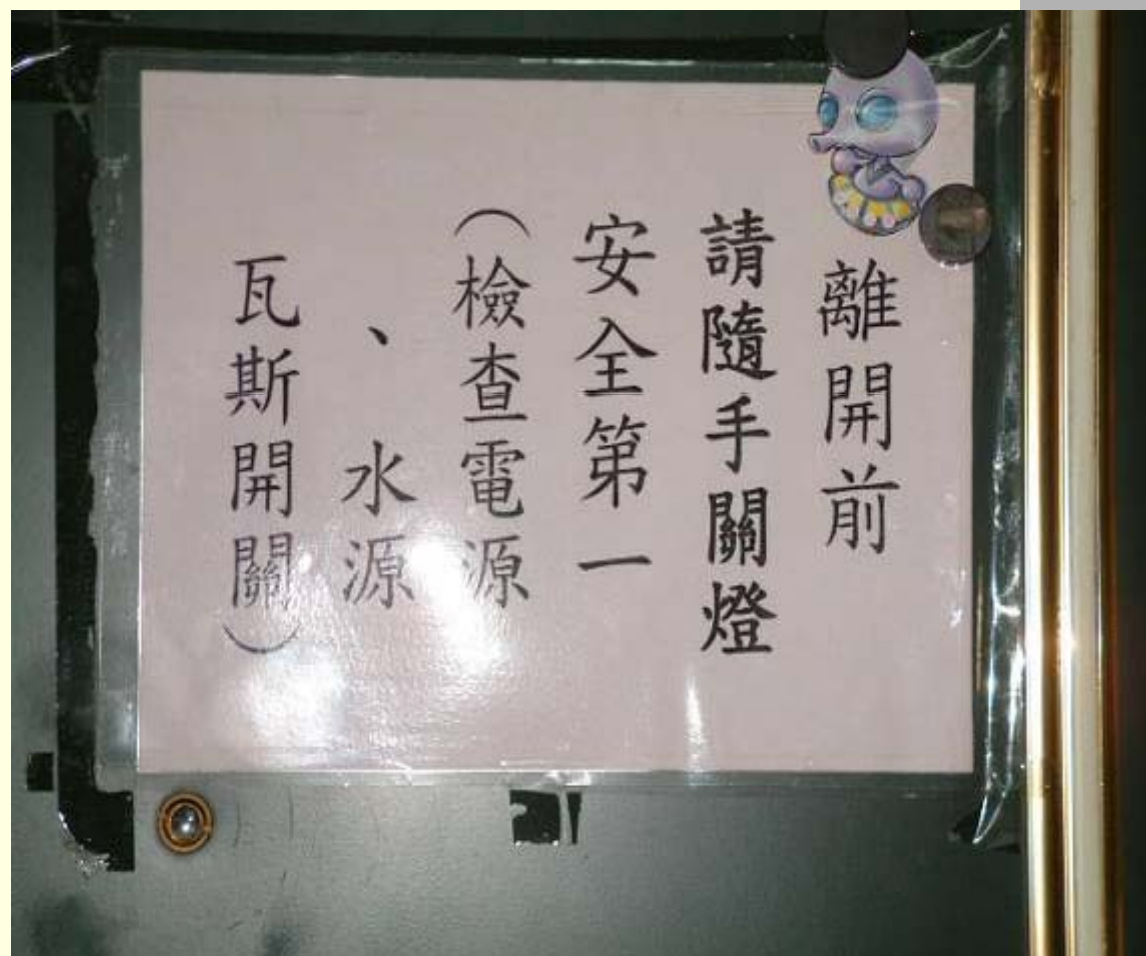 離開前
請隨手關燈
安全第一
(檢查電源
、水源
瓦斯開關)